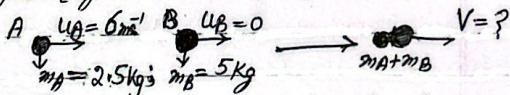 A uA = 6ms⁻¹ B uB = 0 V = ?
mA = 2.5kg; mB = 5kg mA+mB